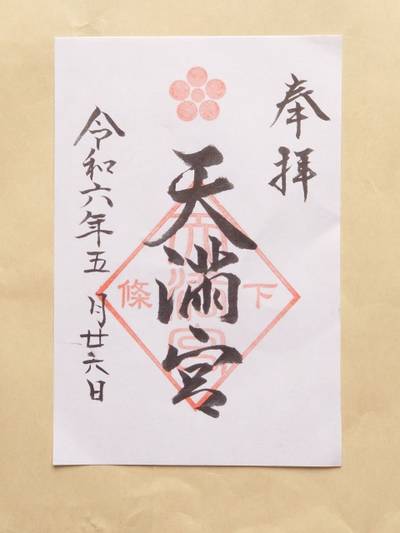 奉拝
下條
天満宮
天満宮
令和六年五月廿六日